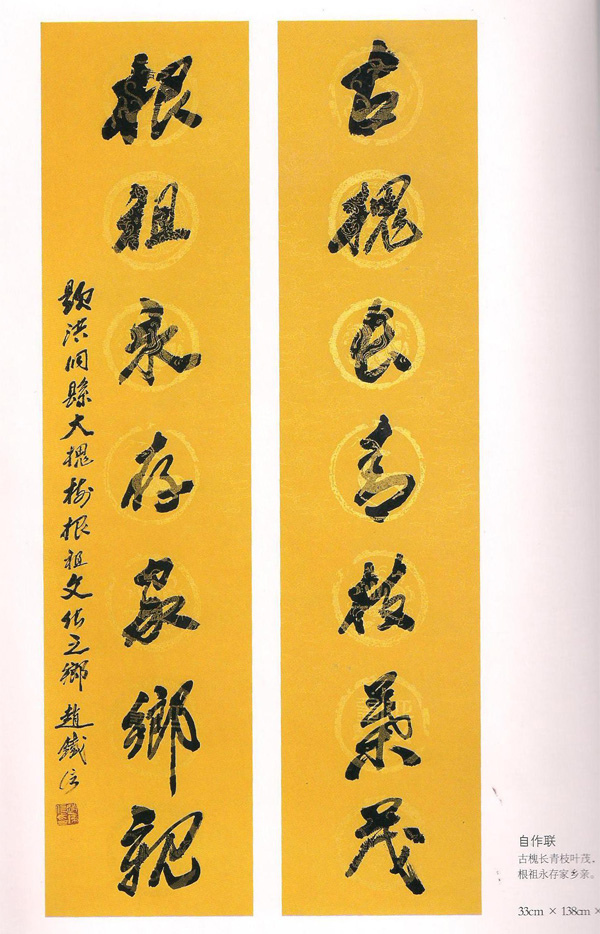 古槐长青枝葉茂
根祖永存家鄉親
題洪洞縣大槐樹根祖文化之鄉 趙鐵信
自作联
古槐长青枝叶茂。
根祖永存家乡亲。
33cm × 138cm ×